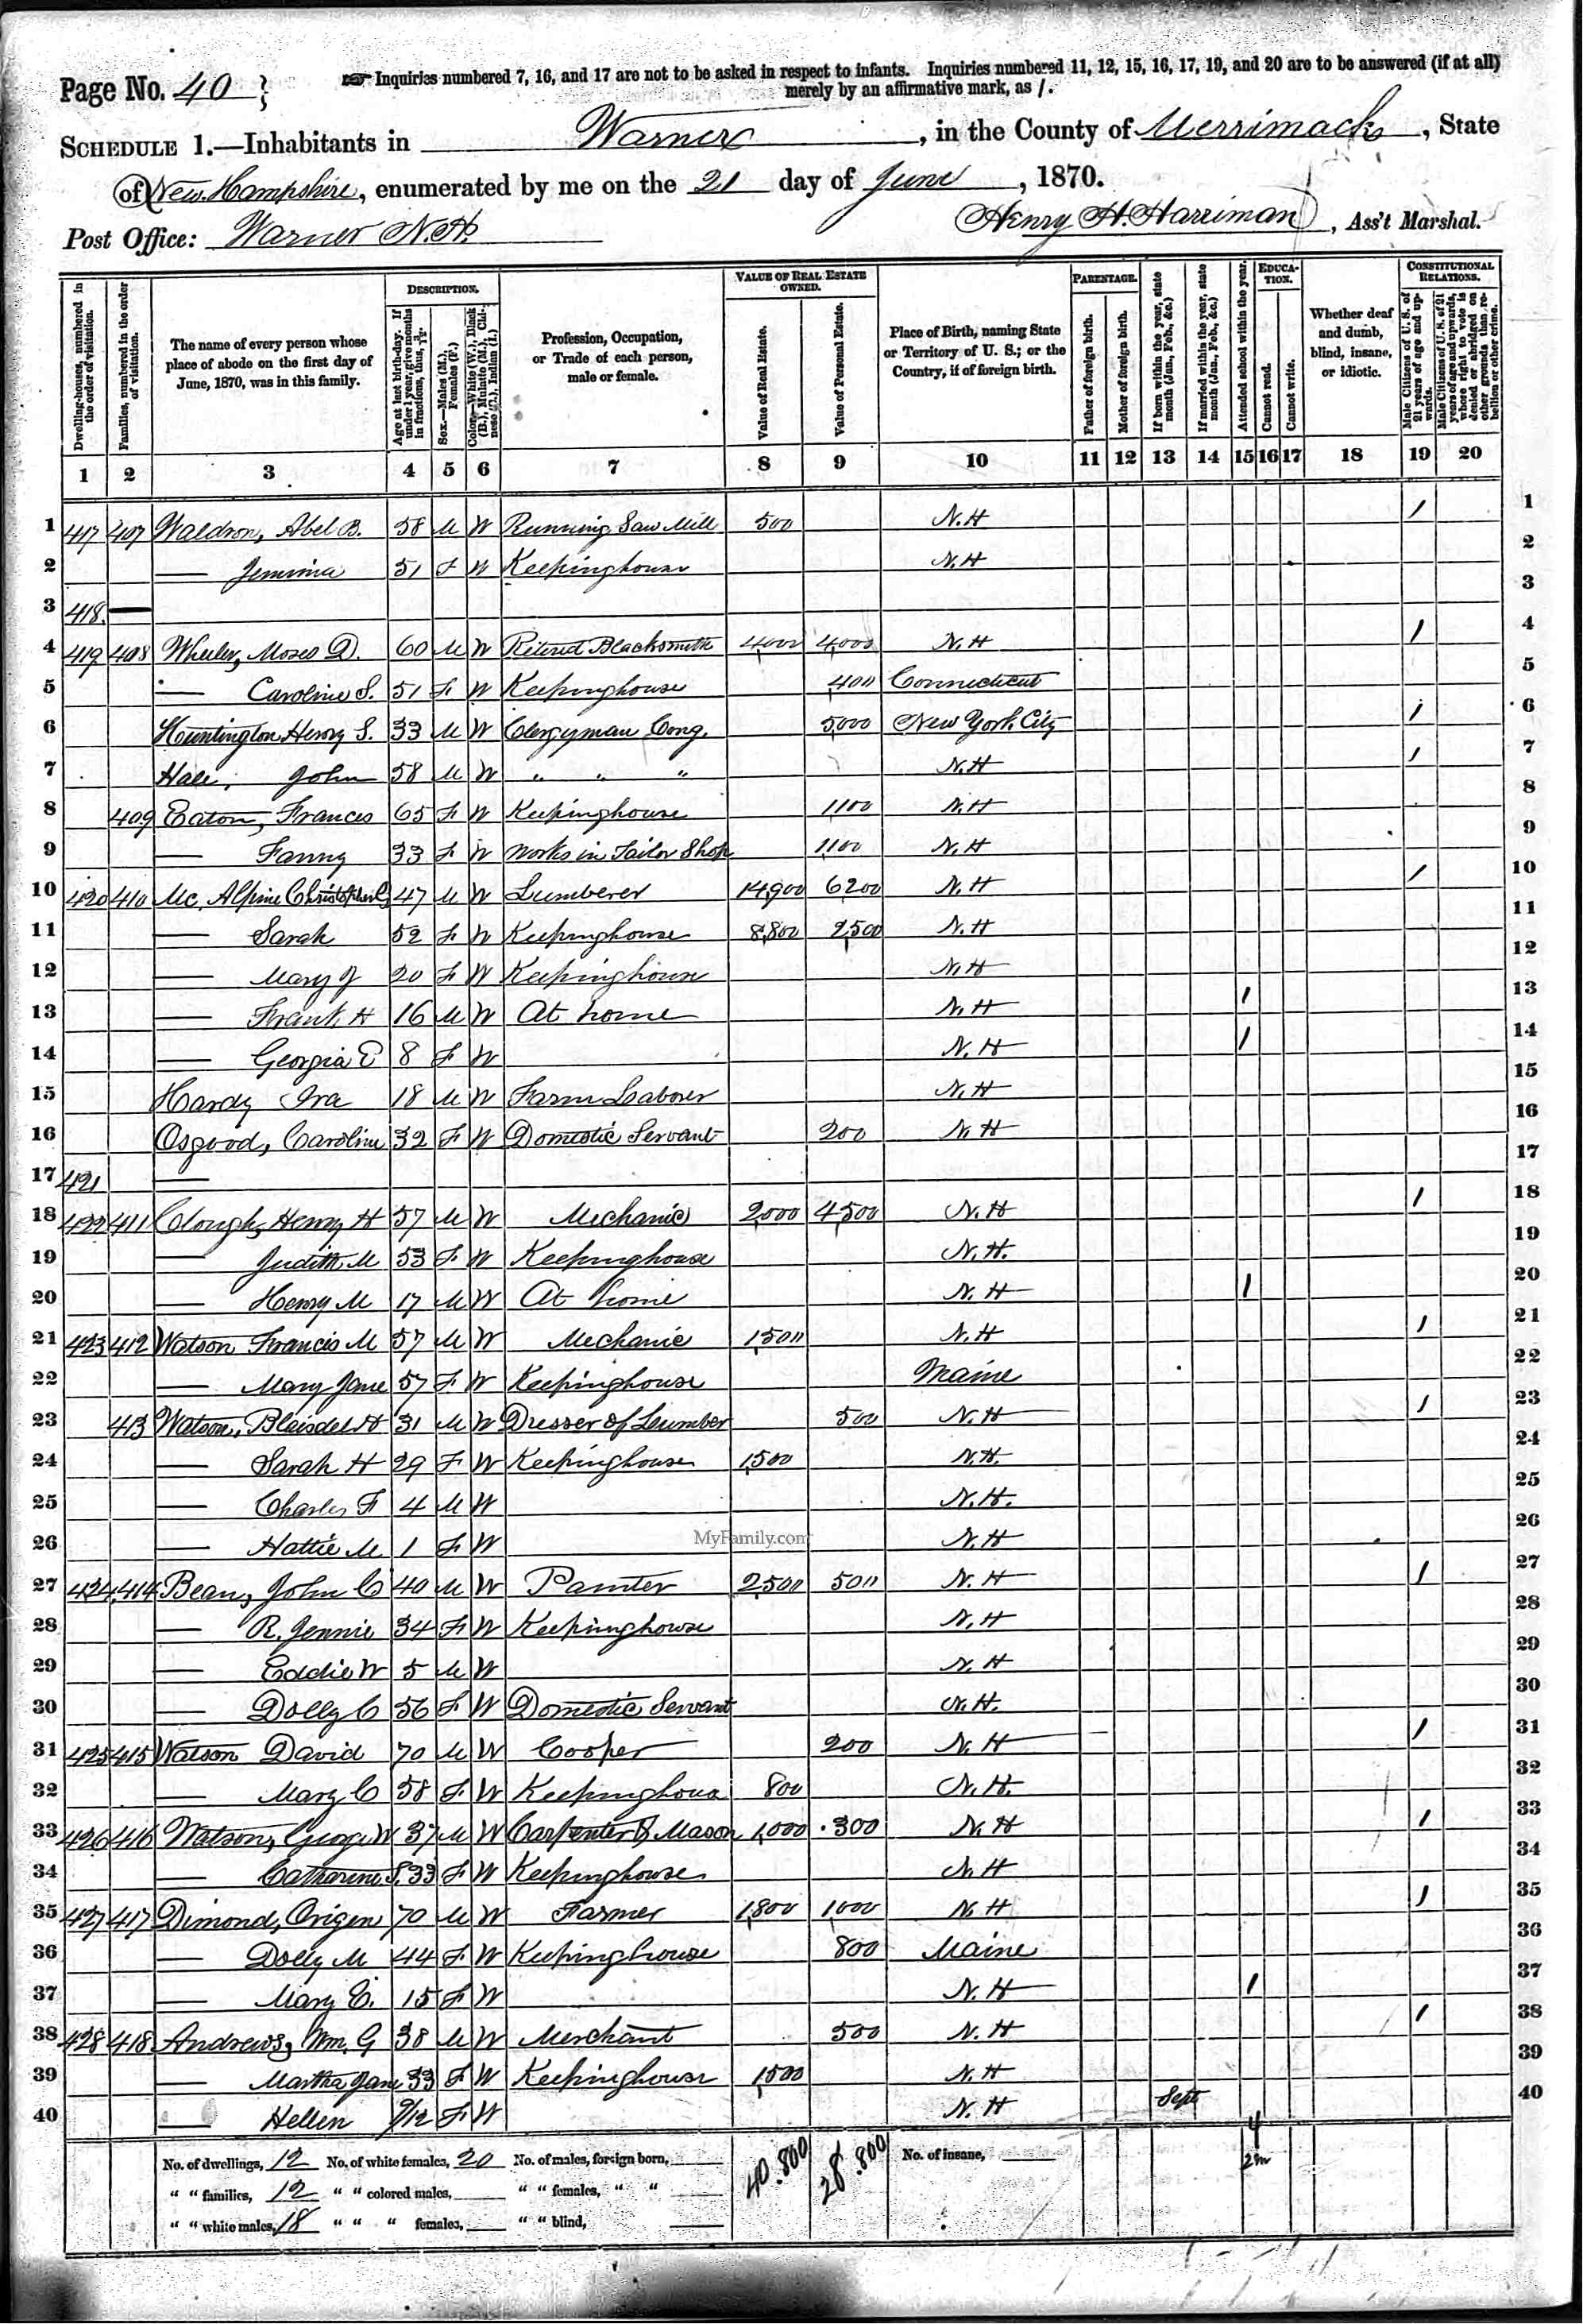 Page No. 40
☞ Inquiries numbered 7, 16, and 17 are not to be asked in respect to infants. Inquiries numbered 11, 12, 15, 16, 17, 19, and 20 are to be answered (if at all)
merely by an affirmative mark, as /.
SCHEDULE 1.—Inhabitants in Warner, in the County of Merrimack, State
of New Hampshire, enumerated by me on the 21 day of June, 1870.
Post Office: Warner N.H.
Henry H. Harriman, Ass't Marshal.
Dwelling-houses, numbered in the order of visitation.
Families, numbered in the order of visitation.
The name of every person whose place of abode on the first day of June, 1870, was in this family.
DESCRIPTION.
Age at last birth-day. If under 1 year, give months in fractions, thus, 3/12.
Sex.—Males (M.), Females (F.)
Color.—White (W.), Black (B.), Mulatto (M.), Chinese (C.), Indian (I.)
Profession, Occupation, or Trade of each person, male or female.
VALUE OF REAL ESTATE OWNED.
Value of Real Estate.
Value of Personal Estate.
Place of Birth, naming State or Territory of U. S.; or the Country, if of foreign birth.
PARENTAGE.
Father of foreign birth.
Mother of foreign birth.
If born within the year, state month (Jan., Feb., &c.)
If married within the year, state month (Jan., Feb., &c.)
Attended school within the year.
EDUCATION.
Cannot read.
Cannot write.
Whether deaf and dumb, blind, insane, or idiotic.
CONSTITUTIONAL RELATIONS.
Male Citizens of U. S. of 21 years of age and upwards.
Male Citizens of U. S. of 21 years of age and upwards, whose right to vote is denied or abridged on other grounds than rebellion or other crime.
1 2 3 4 5 6 7 8 9 10 11 12 13 14 15 16 17 18 19 20
1 417 407 Waldron, Abel B. 58 M W Running Saw Mill 500 N.H / 1
2 — Jemima 51 F W Keepinghouse N.H 2
3 418 — 3
4 419 408 Wheeler, Moses D. 60 M W Retired Blacksmith 4,000 4,000 N.H / 4
5 — Caroline S. 51 F W Keepinghouse 400 Connecticut 5
6 Huntington Henry S. 33 M W Clergyman Cong. 5,000 New York City / 6
7 Hale, John 58 M W " " " N.H / 7
8 409 Eaton, Frances 65 F W Keepinghouse 1100 N.H 8
9 — Fanny 33 F W Works in Tailor Shop 1,100 N.H 9
10 420 410 Mc Alpine Christopher G 47 M W Lumberer 14,900 6200 N.H / 10
11 — Sarah 52 F W Keepinghouse 8,800 2,500 N.H 11
12 — Mary J 20 F W Keepinghouse N.H 12
13 — Frank H 16 M W At home N.H / 13
14 — Georgia E 8 F W N.H / 14
15 Hardy Ira 18 M W Farm Laborer N.H 15
16 Osgood, Caroline 32 F W Domestic Servant 200 N.H 16
17 421 — 17
18 422 411 Clough, Henry H 57 M W Mechanic 2,000 4,500 N.H / 18
19 — Judith M 53 F W Keepinghouse N.H. 19
20 — Henry M 17 M W At home N.H / 20
21 423 412 Watson Francis M 57 M W Mechanic 1,500 N.H / 21
22 — Mary Jane 57 F W Keepinghouse Maine 22
23 413 Watson, Blaisdel H 31 M W Dresser of Lumber 500 N.H / 23
24 — Sarah H 29 F W Keepinghouse 1,500 N.H. 24
25 — Charles F 4 M W N.H. 25
26 — Hattie M 1 F W N.H 26
MyFamily.com
27 424 414 Bean, John C 40 M W Painter 2,500 500 N.H / 27
28 — R. Jennie 34 F W Keepinghouse N.H 28
29 — Eddie W 5 M W N.H 29
30 — Dolly C 56 F W Domestic Servant N.H. 30
31 425 415 Watson David 70 M W Cooper 200 N.H / 31
32 — Mary C 58 F W Keepinghouse 800 N.H. 32
33 426 416 Watson, George W 37 M W Carpenter & Mason 1,000 300 N.H / 33
34 — Catharine S. 33 F W Keepinghouse N.H 34
35 427 417 Dimond, Origen 70 M W Farmer 1,800 1,000 N.H / 35
36 — Dolly M 44 F W Keepinghouse 800 Maine 36
37 — Mary E. 15 F W N.H / 37
38 428 418 Andrews, Wm. G 38 M W Merchant 500 N.H / 38
39 — Martha Jane 33 F W Keepinghouse 1,500 N.H 39
40 — Hellen 9/12 F W N.H Sept 40
No. of dwellings, 12 No. of white females, 20 No. of males, foreign born, 40.800 28.800 No. of insane, 4
" " families, 12 " " colored males, " " females, " " 2m
" " white males, 18 " " " females, " " blind,